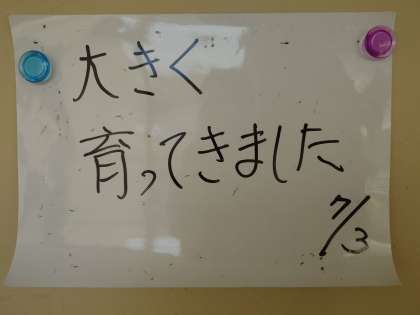 大きく
育ってきました
7/3